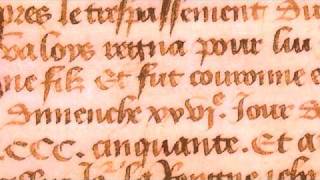 pres le trespassement du
valoys regna pour lui
ne filz Et fut couronne e
dimenche xxvi^e. Jour d
CCC. cinquante. Et a